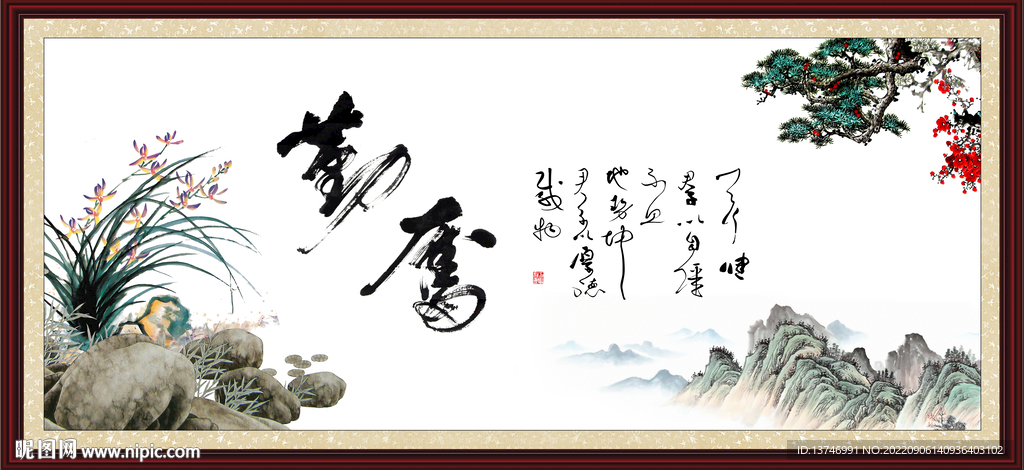 勤奮
天行健
君子以自强
不息
地勢坤
君子以厚德
載物
昵图网 www.nipic.com
ID:13746991 NO:20220906140936403102